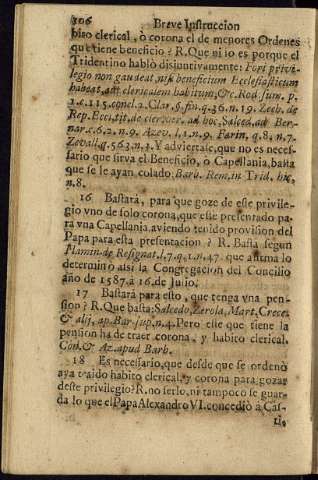 106 Breve Instruccion
bito clerical, ò corona el de menores Ordenes
que tiene beneficio? R. Que ni lo es porque el
Tridentino hablò disiuntivamente: Fori privi-
legio non gaudeat, nisi beneficium Ecclesiasticum
habeat, aut clericalem habitum, &c. Rod. sum. p.
1. c. 115. concl. 2. Clar. §. fin. q. 36. n. 19. Zeeb. de
Rep. Eccl. tit. de cler. ad hoc, Salced. ad Ber-
nar. c. 62. n. 9. Azev. l. 1. n. 9. Farin. q. 8. n. 7.
Zevall. q. 563. n. 3. Y adviertase, que no es neces-
sario que sirva el Beneficio, ò Capellania, basta
que se le ayan colado. Barb. Rem. in Trid. hic,
n. 8.
16 Bastarà, para que goze de este privile-
gio vno de solo corona, que estè presentado para
vna Capellania, aviendo tenido provision del
Papa para esta presentacion? R. Basta segun
Flamin. de Resignat. l. 7. q. 1. n. 47. que afirma lo
determinò assi la Congregacion del Concilio
año de 1587. a 16. de Julio.
17 Bastarà para esto, que tenga vna pen-
sion? R. Que basta: Salcedo, Zerola, Mart. Crece.
& alij, ap. Bar. sup. n. 4. Pero esse que tiene la
pension ha de traer corona, y habito clerical.
Con. & Az. apud Barb.
18 Es necessario, que desde que se ordenò
aya traido habito clerical, y corona para gozar
deste privilegio? R. no serlo, ni tampoco se guar-
da lo que el Papa Alexandro VI. concediò a Cas-